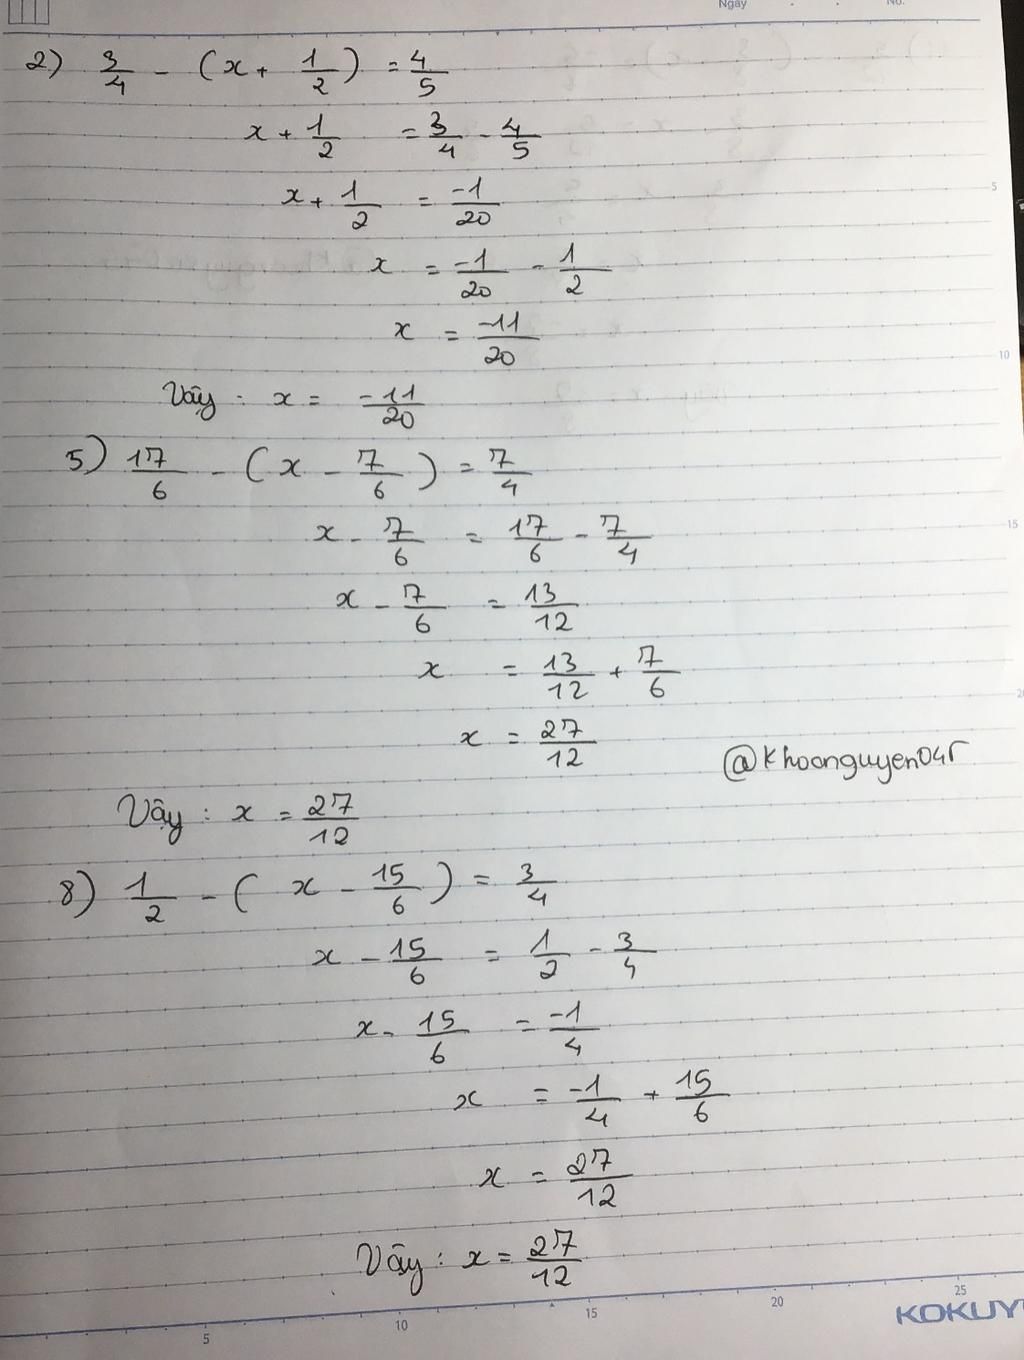 Ngày . . No.
2) 3/4 - (x + 1/2) = 4/5
x + 1/2 = 3/4 - 4/5
x + 1/2 = -1/20
x = -1/20 - 1/2
x = -11/20
Vậy : x = -11/20
5) 17/6 - (x - 7/6) = 7/4
x - 7/6 = 17/6 - 7/4
x - 7/6 = 13/12
x = 13/12 + 7/6
x = 27/12
@khoanguyen045
Vậy : x = 27/12
8) 1/2 - (x - 15/6) = 3/4
x - 15/6 = 1/2 - 3/4
x - 15/6 = -1/4
x = -1/4 + 15/6
x = 27/12
Vậy : x = 27/12
5 10 15 20 25
KOKUY
5
10
15